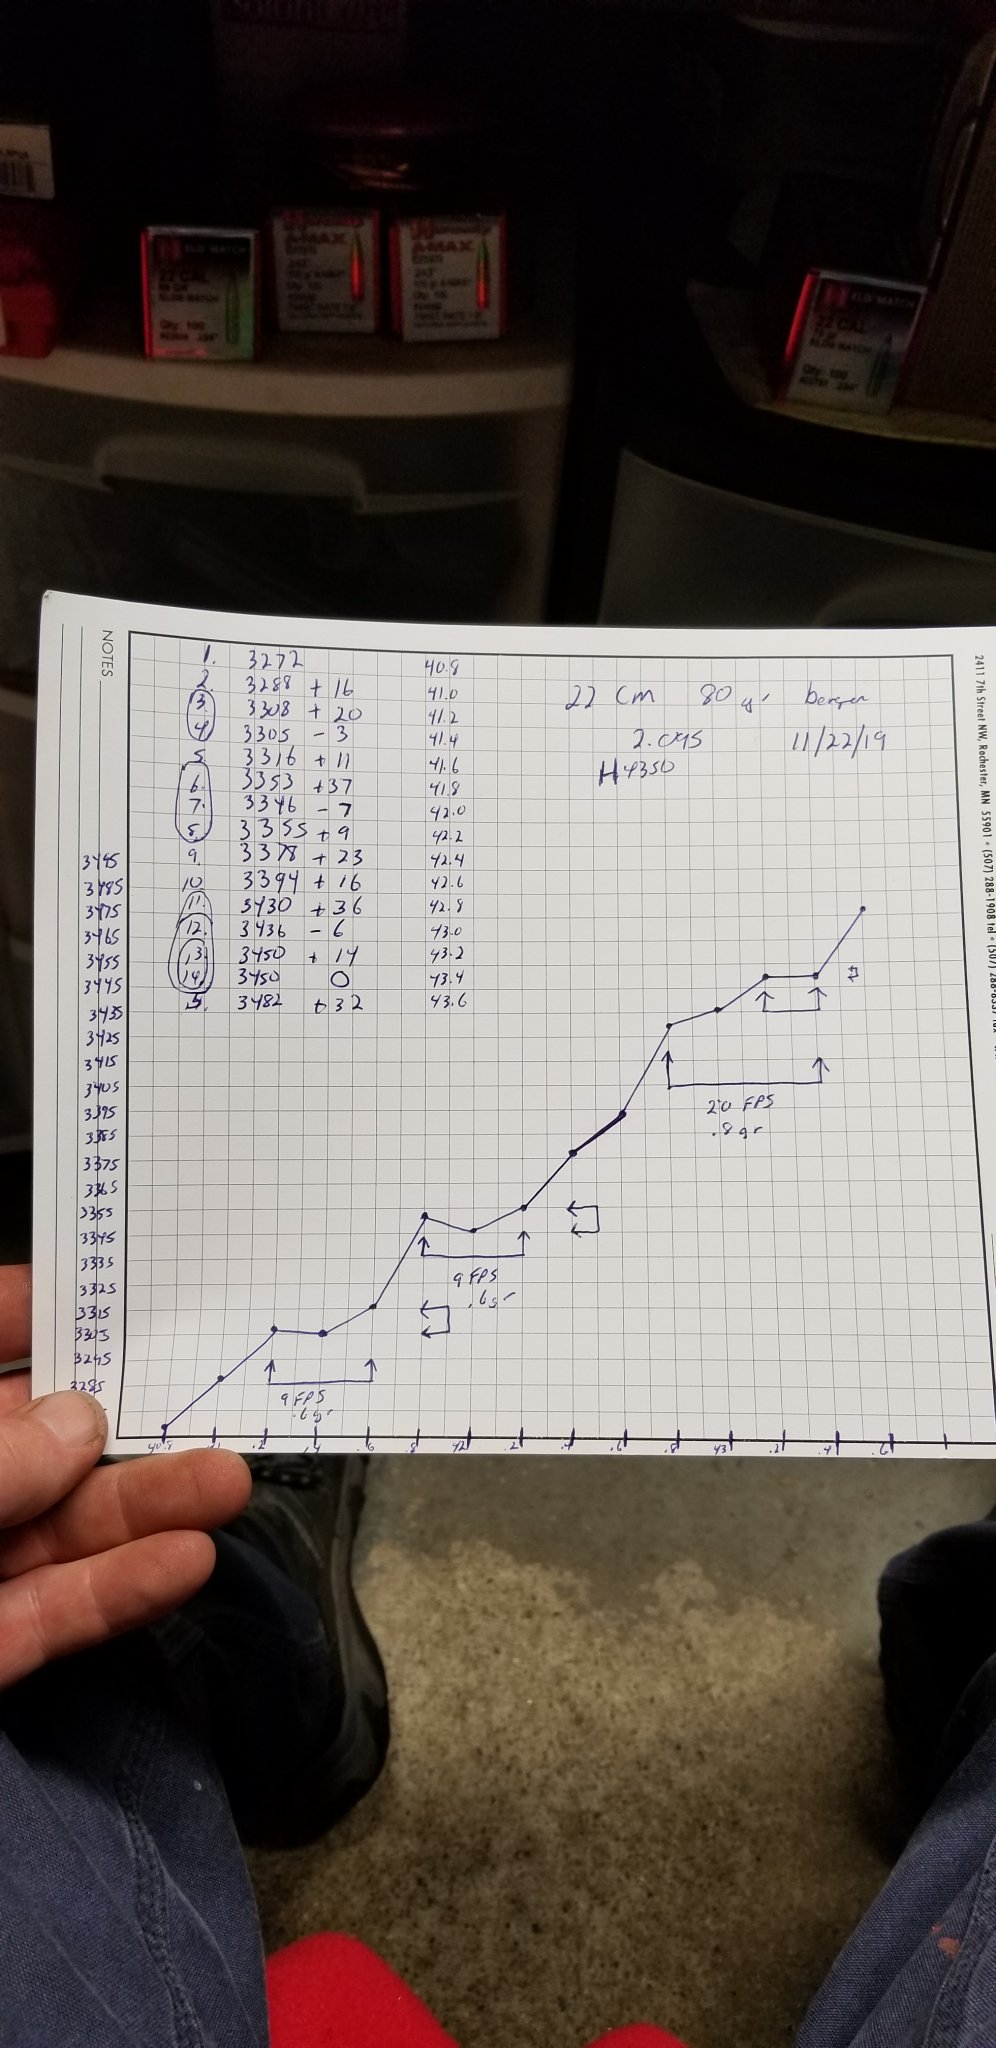 ELD MATCH
22 CAL
ELD® MATCH
Qty: 100
A-MAX
.243"
A-MAX
.243"
ELD MATCH
22 CAL
ELD® MATCH
Qty: 100
NOTES
1. 3272 40.8
2. 3288 + 16 41.0
3. 3308 + 20 41.2
4. 3305 - 3 41.4
5. 3316 + 11 41.6
6. 3353 +37 41.8
7. 3346 - 7 42.0
8. 3355 + 9 42.2
9. 3378 + 23 42.4
10. 3394 + 16 42.6
11. 3430 + 36 42.8
12. 3436 - 6 43.0
13. 3450 + 14 43.2
14. 3450 0 43.4
15. 3482 + 32 43.6
22 cm 80 gr berger
2.095 11/22/19
H4350
2411 7th Street NW, Rochester, MN 55901 • (507) 288-1908 tel •
3495
3485
3475
3465
3455
3445
3435
3425
3415
3405
3395
3385
3375
3365
3355
3345
3335
3325
3315
3305
3295
3285
20 FPS
.8 gr
9 FPS
.6 gr
9 FPS
.6 gr
40.8 .1 .2 .4 .6 .8 42 .2 .4 .6 .8 43 .2 .4 .6